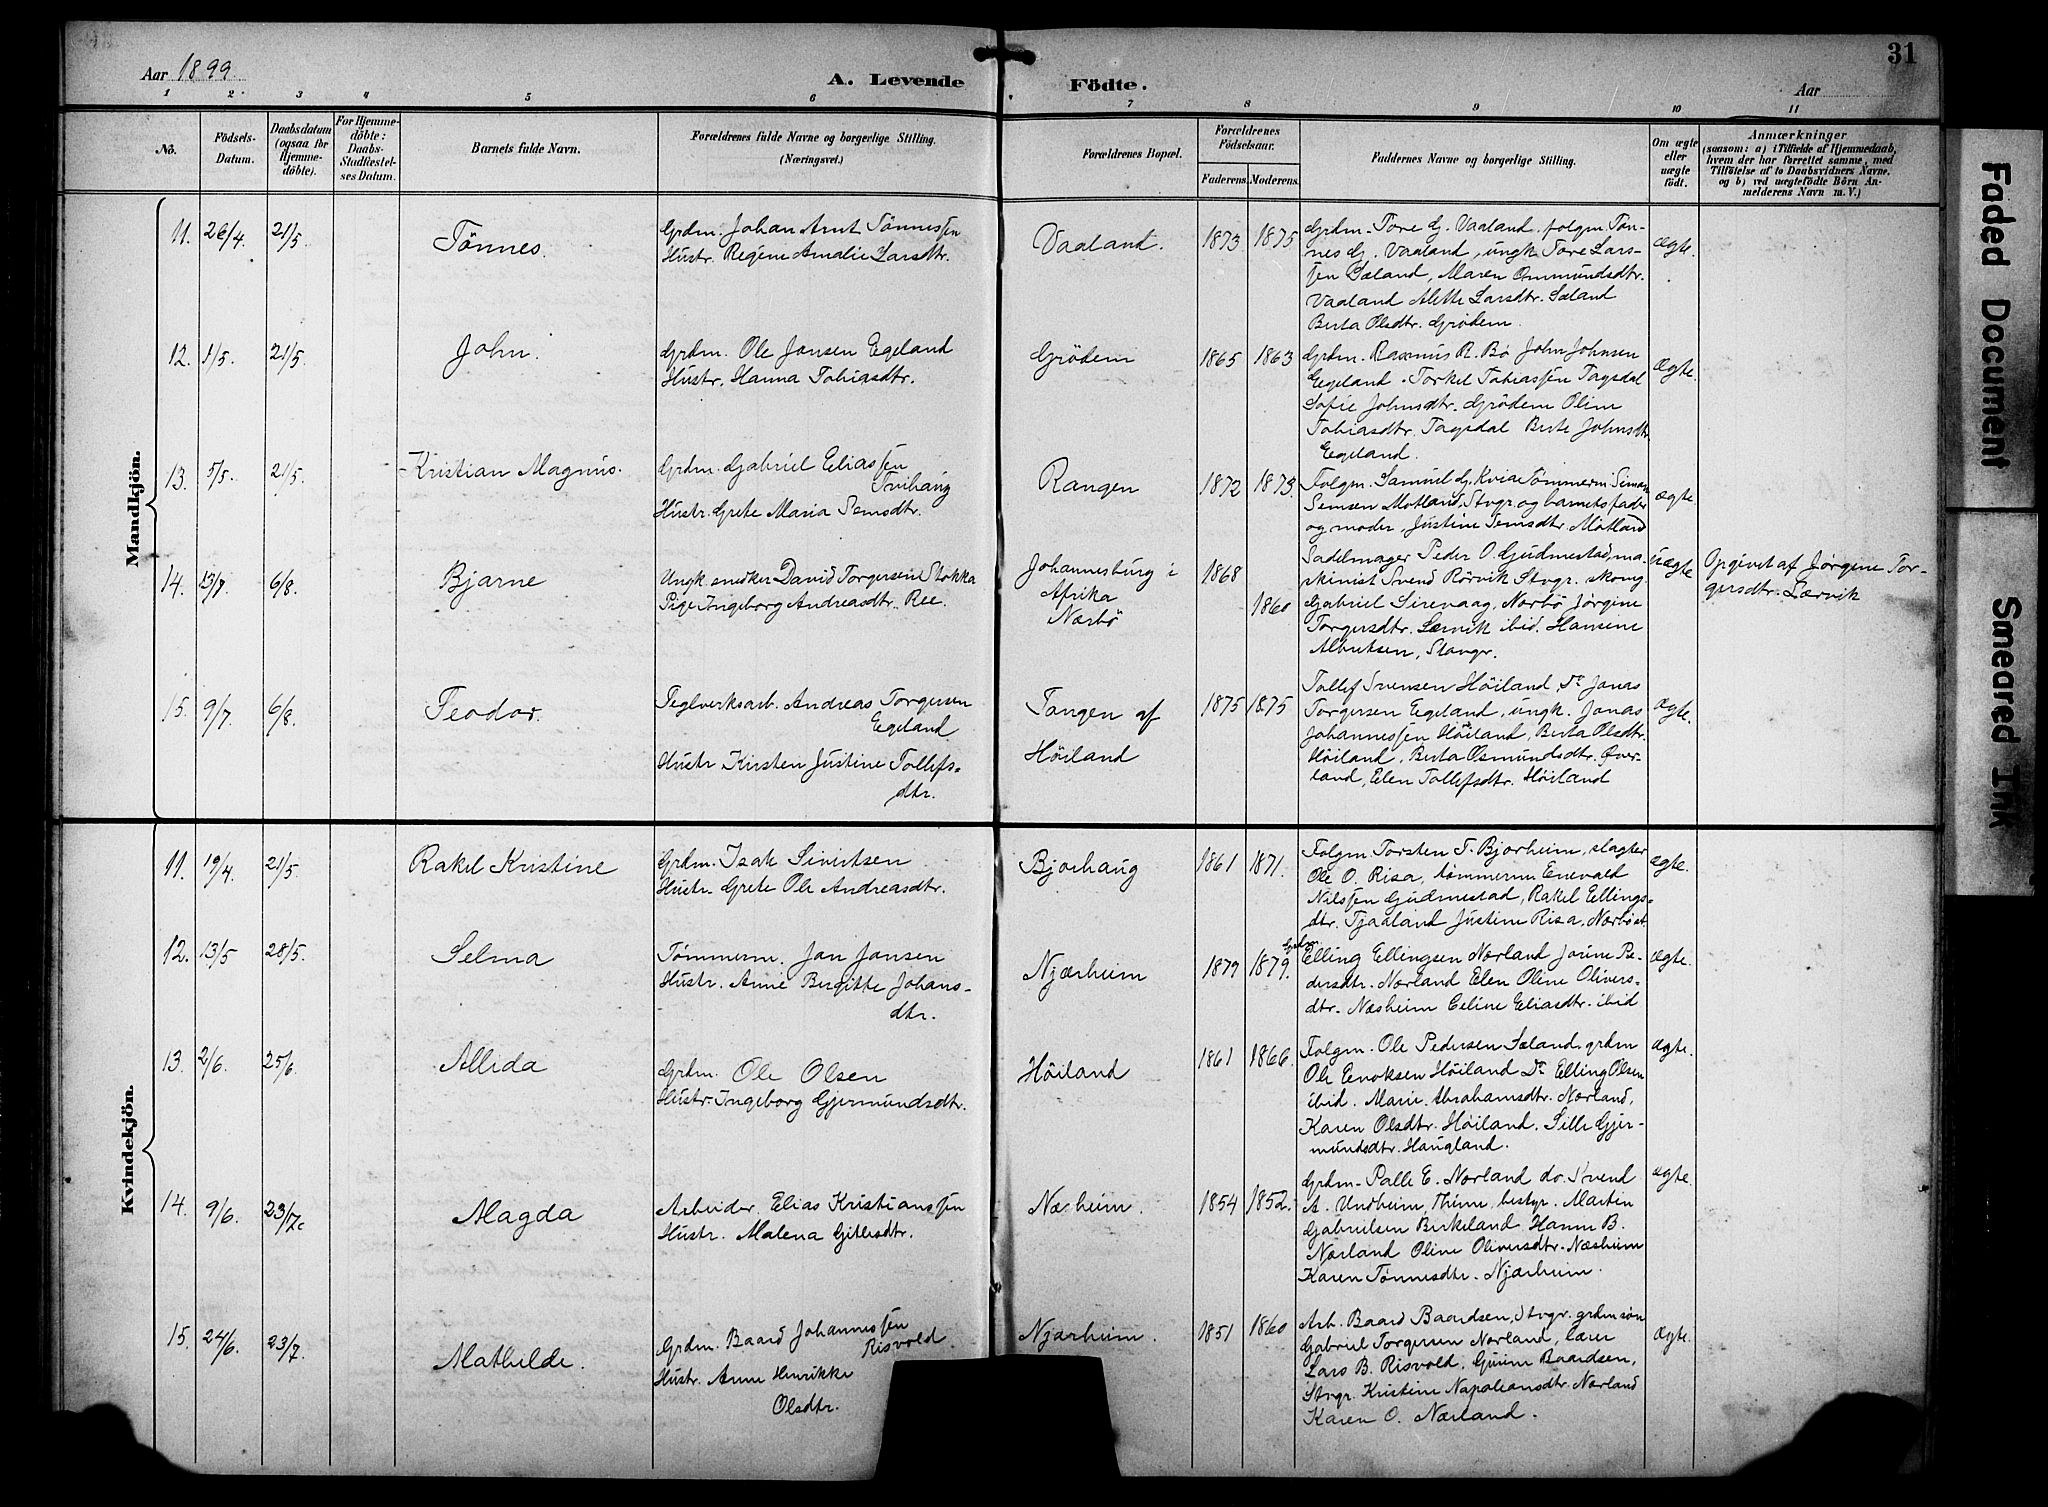 Aar 1899.
A. Levende Födte.
31
Aar
1 2 3 4 5 6 7 8 9 10 11
No.
Födsels-Datum.
Daabsdatum (ogsaa for Hjemmedöbte).
For Hjemmedöbte: Daabs-Stadfæstelses Datum.
Barnets fulde Navn.
Forældrenes fulde Navne og borgerlige Stilling. (Næringsvei.)
Forældrenes Bopæl.
Forældrenes Födselsaar.
Faderens. Moderens.
Faddernes Navne og borgerlige Stilling.
Om ægte eller uægte födt.
Anmærkninger
(saasom: a) i Tilfælde af Hjemmedaab, hvem der har forrettet samme, med Tilföielse af to Daabsvidners Navne, og b) ved uægtefödte Börn Anmelderens Navn m. V.)
Mandkjön.
11. 26/4. 21/5. Tönnes.
Grdm. Johan Arnt Tönnessen
Hustr. Regine Amalie Larsdtr.
Vaaland. 1873 1875
Grdm. Tore G. Vaaland. folgm. Tön-
nes G. Vaaland, ungk. Tore Lars-
sen Sæland, Maren Ommundsdtr.
Vaaland Alette Larsdtr. Sæland
Berta Olsdtr. Grödem.
ægte.
12. 1/5. 21/5 John.
Grdm. Ole Jonsen Egeland
Hustr. Hanna Tobiasdtr.
Grödem 1865 1863
Grdm. Rasmus R. Bö John Johnsen
Egeland. Torkel Tobiassen Tagsdal
Sofie Johnsdtr. Grödem Oline
Tobiasdtr. Tagsdal Berte Johnsdtr
Egeland.
Ægte.
13. 5/5. 21/5. Kristian Magnus.
Grdm. Gabriel Eliassen
Tvihaug
Hustr. Grete Maria Semsdtr.
Rangen 1872 1873.
Folgm. Samuel G. Kvia Tömmerm. Simon
Semsen Motland, Stvgr. og barnets fader
og moder, Justine Semsdtr. Motland
ægte
14. 13/7. 6/8. Bjarne
Ungk. snedker David Torgersen Stokka
Pige Ingeborg Andreasdtr. Ree.
Johannesburg i
Afrika
Nærbö
1868
1860
Sadelmager Peder O. Gudmestad, ma-
skinist Svend Rörvik Stvgr. skomg.
Gabriel Sirevaag, Nærbö Jörgine
Torgersdtr. Lervik ibid. Hansine
Albretsen, Stavgr.
uægte
Opgivet af Jörgine Tor-
gersdtr. Lærvik
15. 9/7. 6/8. Teodor.
Teglverksarb. Andreas Torgersen
Egeland
Hustr Kirsten Justine Tollefs-
dtr.
Tangen af
Höiland
1875 1875
Tollef Svensen Höiland, Do Jonas
Torgersen Egeland, ungk. Jonas
Johannessen Höiland, Berta Olsdtr.
Höiland, Berta Osmundsdtr. Över-
land, Elen Tollefsdtr. Höiland
ægte.
Kvindekjön.
11. 19/4. 21/5. Rakel Kristine
Grdm. Isak Sivertsen
Hustr. Grete Ole Andreasdtr.
Bjorhaug 1861 1871.
Folgm. Torsten T. Bjorheim, slagter
Ole O. Risa, tömmerm Enevald
Nilssen Gudmestad, Rakel Ellings-
dtr. Tjaaland Justine Risa, Nærböst.
ægte.
12. 13/5 28/5. Selma
Tömmerm. Jon Jonsen
Hustr. Anne Birgitte Johans-
dtr.
Njærheim 1879 1879.
Grdm.
Elling Ellingsen Nærland Jorine Pe-
dersdtr. Nærland Elen Oline Olivers-
dtr. Næsheim Celine Eliasdtr. ibid
ægte.
13. 2/6. 25/6. Allida
Grdm. Ole Olsen
Hustr. Ingeborg Gjermundsdtr.
Höiland 1861 1866.
Folgm. Ole Pedersen Sæland, grdm
Ole Enoksen Höiland Do Elling Olsen
ibid. Marie Abrahamsdtr. Nærland,
Karen Olsdtr. Höiland. Sille Gjer-
mundsdtr. Haugland.
ægte.
14. 9/6. 23/7. Magda
Arbeider. Elias Kristianssen
Hustr. Malena Gitlesdtr.
Nærheim. 1854 1852.
Grdm. Palle E. Nærland do. Svend
A. Undheim, Thime, bestyr. Marten
Gabrielsen Birkeland Hanne B.
Nærland Oline Oliversdtr. Næsheim
Karen Tönnesdtr. Njærheim.
ægte.
15. 24/6. 23/7. Mathilde.
Grdm. Baard Johannessen
Risvold
Hustr. Anne Henrikke
Olsdtr.
Njærheim. 1851 1860
Arb. Baard Baardsen, Stvgr. grdmsön
Gabriel Torgersen Nærland, lærer
Lars B. Risvold. Gurine Baardsen,
Stvgr. Kristine Napoleansdtr. Nærland
Karen O. Nærland.
Ægte.
Faded Document
Smeared Ink